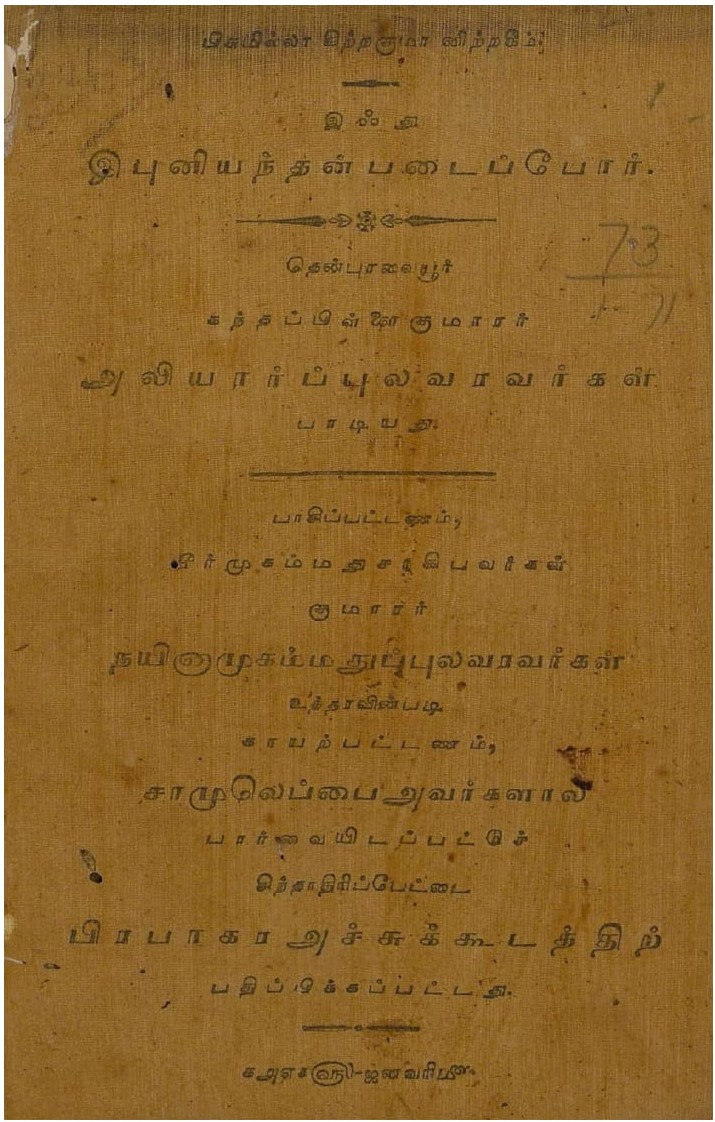 பிசுமில்லா கிற்றகுமா னிற்றகீம்.
இஃது
இபுனியந்தன்படைப்போர்.
73
1-71
தென்புரவையூர்
கந்தப்பிள்ளைகுமாரர்
அலியார்ப்புலவரவர்கள்
பாடியது.
பாகிப்பட்டணம்,
பீர்முகம்மதுசாகிபவர்கள்
குமாரர்
நயினாமுகம்மதுப்புலவரவர்கள்
உத்தரவின்படி
காயற்பட்டணம்,
சாமுலெப்பைஅவர்களால்
பார்வையிடப்பட்டுச்
சிந்தாதிரிப்பேட்டை
பிரபாகரஅச்சுக்கூடத்திற்
பதிப்பிக்கப்பட்டது.
௧௮௭௧௵-ஜனவரி௴.